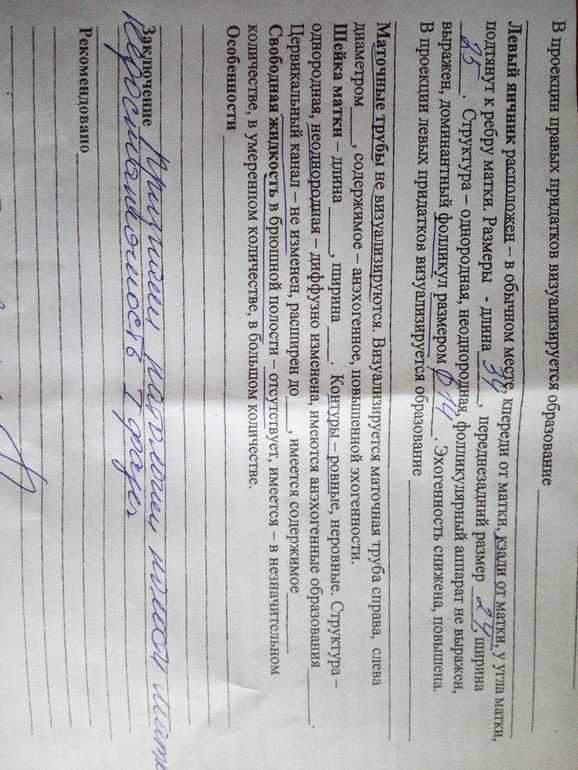 В проекции правых придатков визуализируется образование
Левый яичник расположен – в обычном месте, кпереди от матки, кзади от матки, у угла матки,
подтянут к ребру матки. Размеры - длина 34, переднезадний размер 24, ширина
25. Структура – однородная, неоднородная, фолликулярный аппарат не выражен,
выражен, доминантный фолликул размером ф 14. Эхогенность снижена, повышена.
В проекции левых придатков визуализируется образование
Маточные трубы не визуализируются. Визуализируется маточная труба справа, слева
диаметром , содержимое – анэхогенное, повышенной эхогенности.
Шейка матки – длина , ширина . Контуры – ровные, неровные. Структура –
однородная, неоднородная – диффузно изменена, имеются анэхогенные образования
Цервикальный канал – не изменен, расширен до , имеется содержимое
Свободная жидкость в брюшной полости – отсутствует, имеется – в незначительном
количестве, в умеренном количестве, в большом количестве.
Особенности
Заключение
недостаточность I фазы
Рекомендовано